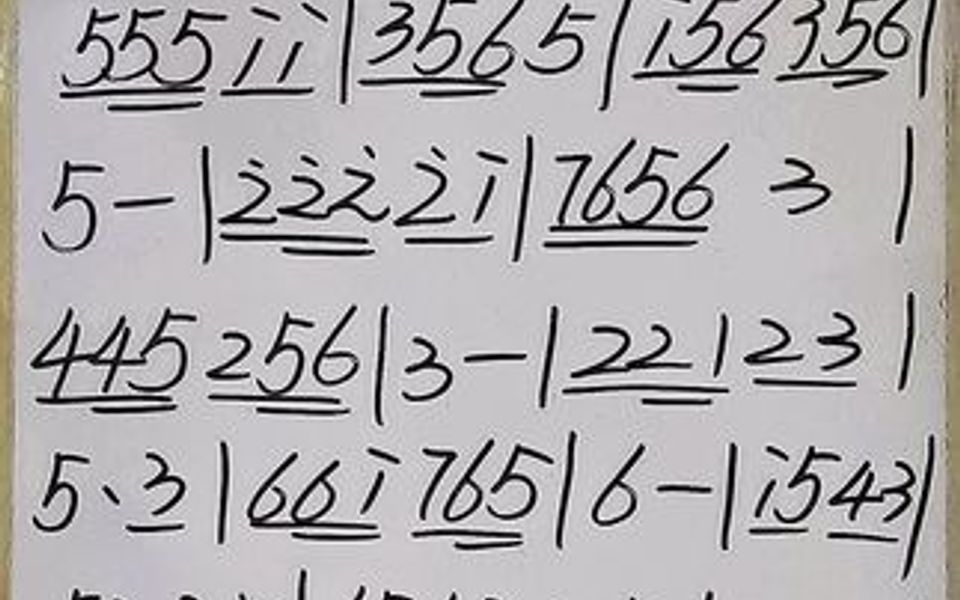 555 i i | 3565 | i56 356 |
5 - | 2̇2̇2̇ 2̇i | 7656 3 |
445 256 | 3 - | 221 23 |
5、3 | 66i 765 | 6 - | i5 43 |